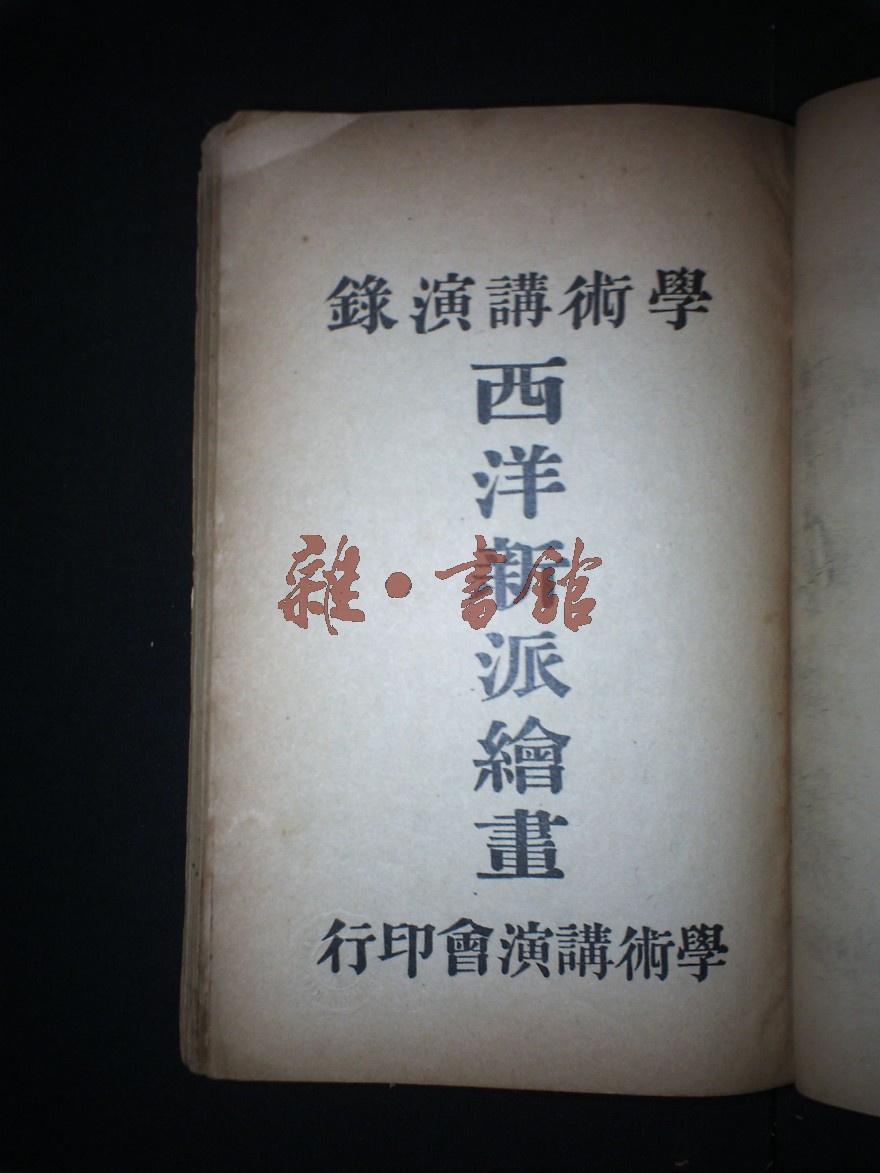 學術講演錄
西洋新派繪畫
雜·書館
學術講演會印行